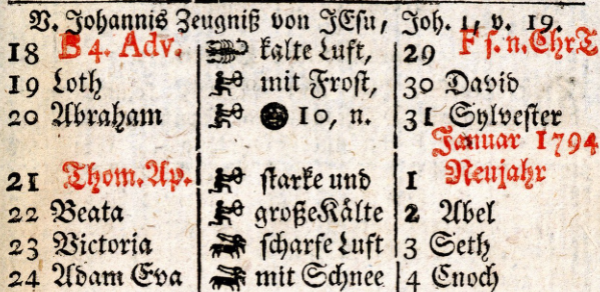 V. Johannis Zeugniß von JEsu, Joh. 1, v. 19.
18 B 4. Adv. kalte Luft, 29 F s. n. ChrT
19 Loth mit Frost, 30 David
20 Abraham 10, n. 31 Sylvester
Januar 1794
21 Thom. Ap. starke und 1 Neujahr
22 Beata große Kälte 2 Abel
23 Victoria scharfe Luft 3 Seth
24 Adam Eva mit Schnee 4 Enoch